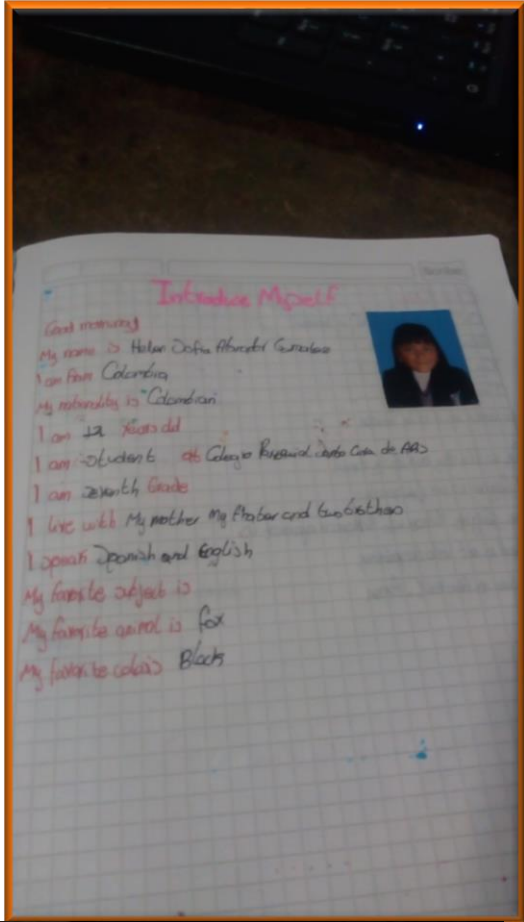 Introduce Myself
Good morning!
My name is Sofia
I am from Colombia
My nationality is Colombian
I am 12 Years old
I am student at Colegio Parroquial
I am seventh Grade
I live with My mother My and two
I speak Spanish and English
My favorite subject is
My favorite animal is fox
My favorite color is Black